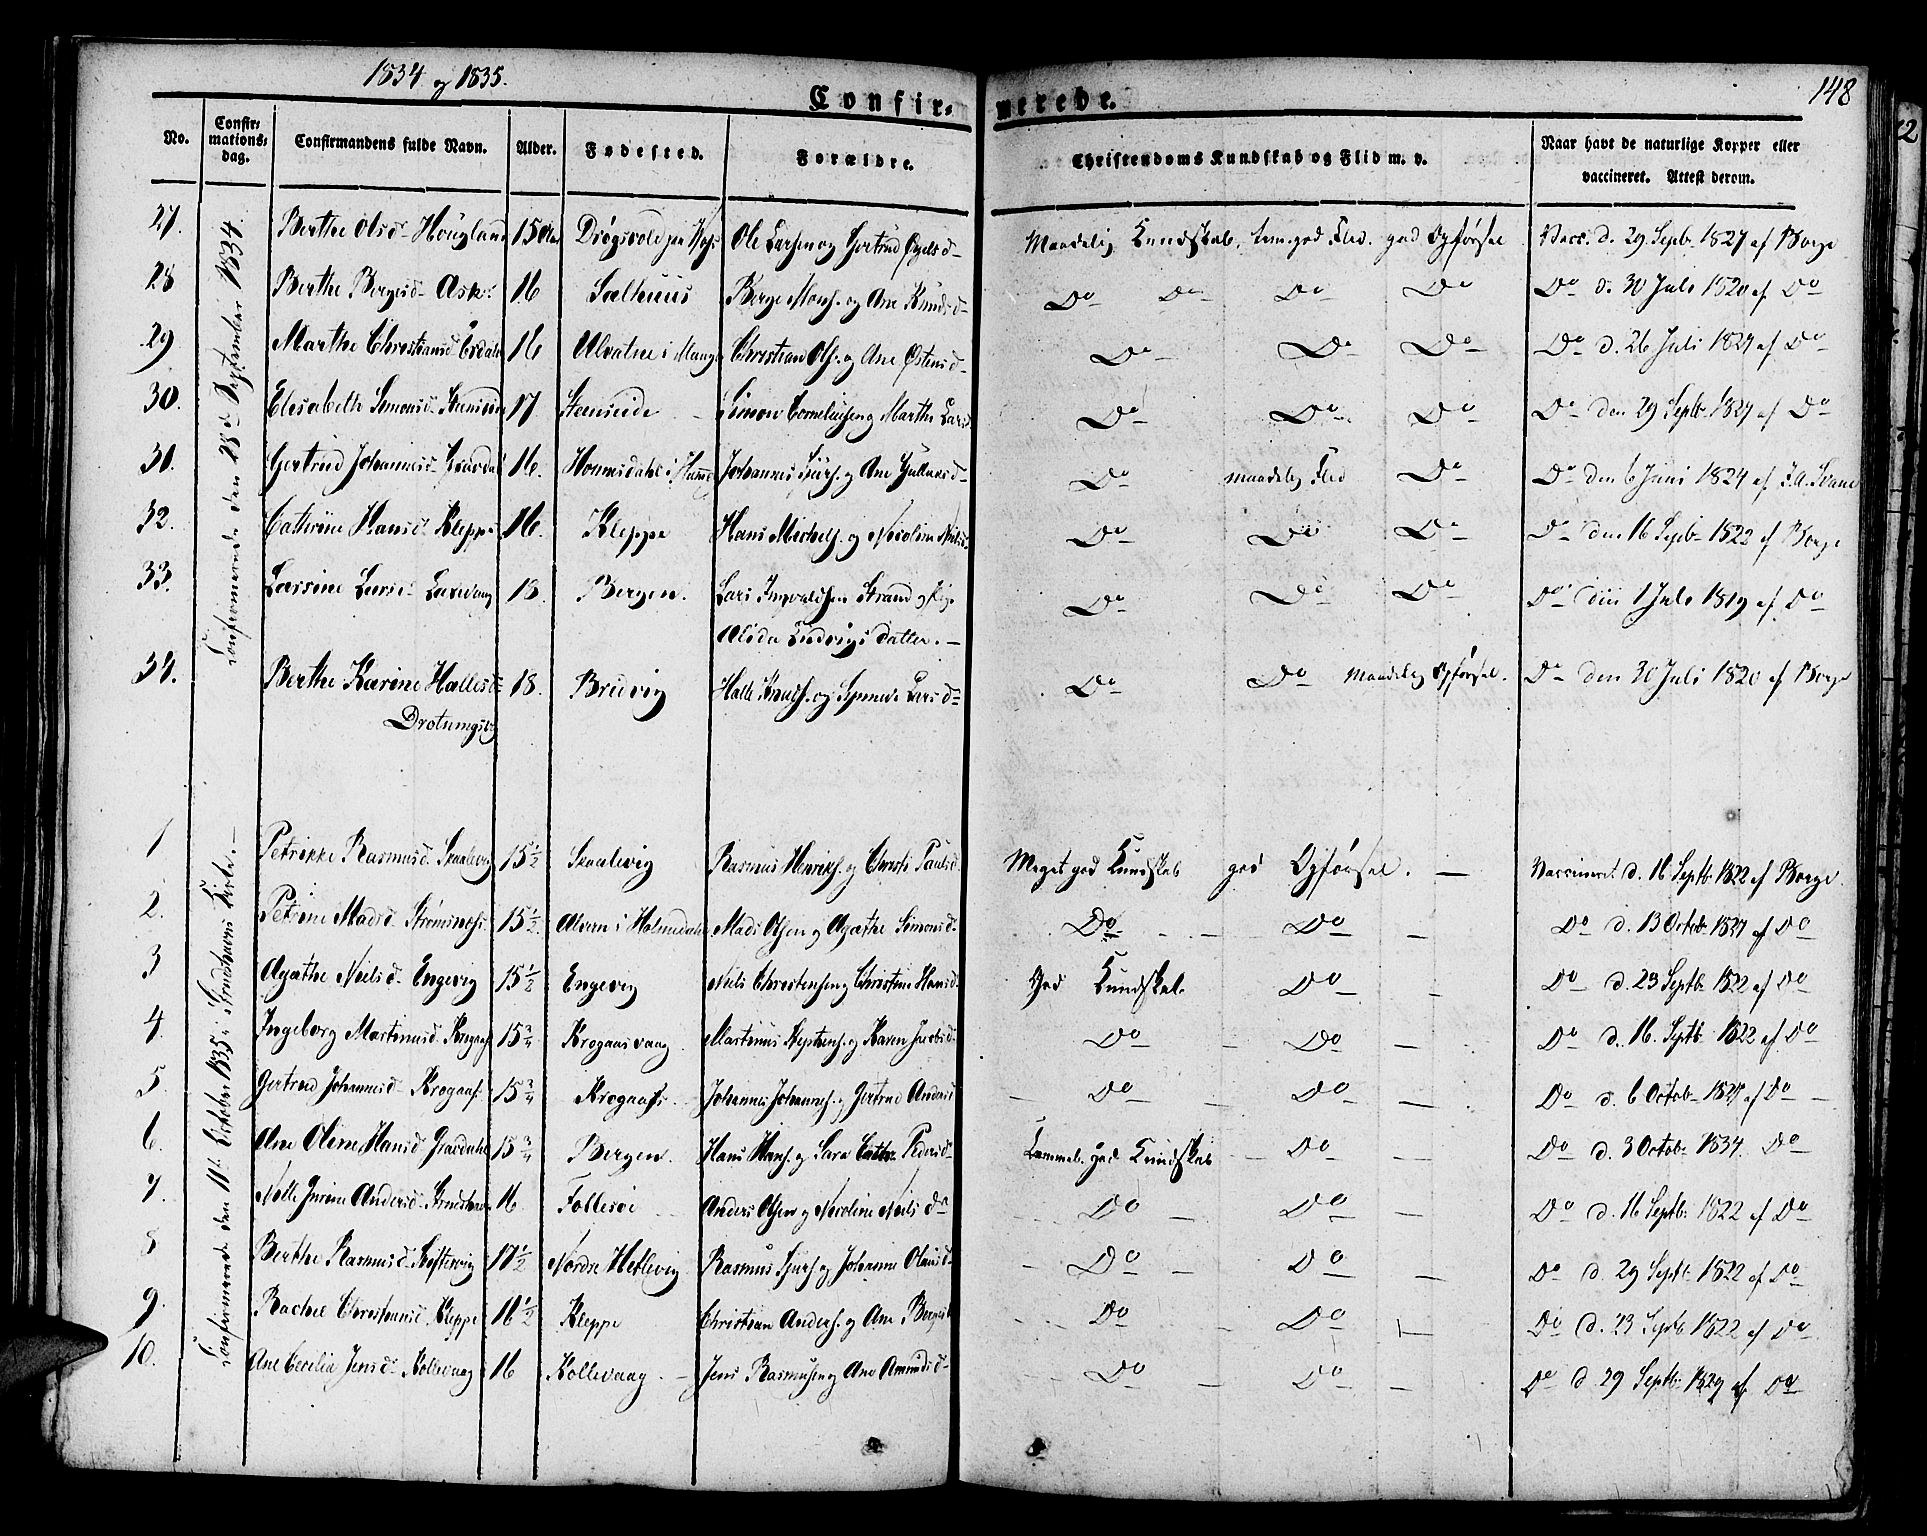 1834 og 1835.
148
Confir-
merede.
No.
Confir-
mations-
dag.
Confirmandens fulde Navn.
Alder.
Fødested.
Forældre.
Christendoms Kundskab og Flid m. v.
Naar havt de naturlige Kopper eller
vaccineret. Attest derom.
Confirmerede den 28de September 1834.
27. Berthe Olsd. Hougland 15 Ole Larsen og Gertrud Maadelig Kundskab, tem. god Flid. god Opførsel Vacc. d. 29 Septb. 1827 af Borge
28 Berthe Bergesd. Ask. 16 Salthuus Berge Monss. og Ane Knudsd. Do Do Do Do Do d. 30 Juli 1820 af Do
29 Marthe Christiansd. 16 Alvatne i Manger Christian Ols. og Ane Østensd. Do Do Do Do d. 26 Juli 1827 af Do
30. Elisabeth Simonsd. Steenseide 17 Steenseide Simon Corneliusen og Marthe Larsd. Do Do Do Do den 29 Septb. 1827 af Do
31. Gertrud Johannesd. 16. i Johannes og Ane Do maadelig Flid Do Do den 6 Juni 1824 af
32. Cathrine Hansd. Kleppe 16. Kleppe Hans Michels. og Nicoline Nielsd. Do Do Do Do den 16 Septb. 1822 af Borge
33. Larsine Larsd. 18. Bergen. Lars Strand og Pige Do Do Do Do den 1 Juli 1819 af Do
Alida Ludvigs datter.
34. Berthe Karine Hallesd. 18. Bruvig Halle og Synneve Larsd. Do Do Maadelig Opførsel. Do den 30 Juli 1820 af Borge
Drotningsvig
Confirmerede den 11te October 1835 i Strudshavns Kirke.
1 Petrikke Rasmusd. Skaalevig 15 1/2 Skaalevig Rasmus Henriks. og Christi Paulsd. Meget god Kundskab god Opførsel. Vaccineret d. 16 Septb. 1822 af Borge.
2. Petrine Madsd. Strømsnæss 15 1/2 Alvern i Holmedal Mads Olsen og Agathe Simonsd. Do Do Do d. 13 Octob. 1827 af Do
3 Agathe Nielsd. Engevig 15 1/2 Engevig Niels Christensen og Christine Hansd. God Kundskab. Do Do d. 23 Septb. 1822 af Do
4. Ingeborg Martinusd. Krogaas 15 3/4 Krogaasvaag Martinus og Karen Jacobsd. Do Do Do d. 16. Septb. 1822 af Do
5. Gertrud Johannesd. Krogaas. 15 3/4 Krogaass. Johannes Johannes. og Gertrud Andersd. Do Do Do d. 6 Octob. 1827 af Do
6. Ane Oline Hansd. 15 3/4 Bergen. Hans Hans. og Sara Cathr. Pedersd. Temmel. god Kundskab Do Do d. 3 Octob. 1834. Do
7. Andersd. 16 Follesøe Anders Olsen og Nicoline Nielsd. Do Do Do d. 16 Septb. 1822 af Do
8 Berthe Rasmusd. 17 1/2 Nordre Hetlevig Rasmus Sjurs. og Johanne Olausd. Do Do Do d. 29 Septb. 1822 af Do
9. Rachel Christiansd. Kleppe 16 1/2 Kleppe Christian Anders. og Ane Bergesd. Do Do Do d. 23 Septb 1822 af Do
10. Ane Cecilia Jensd. Kollevaag 16 Kollevaag. Jens Rasmusen og Ane Amundsd. Do Do Do d 29 Septb. 1829 af Do